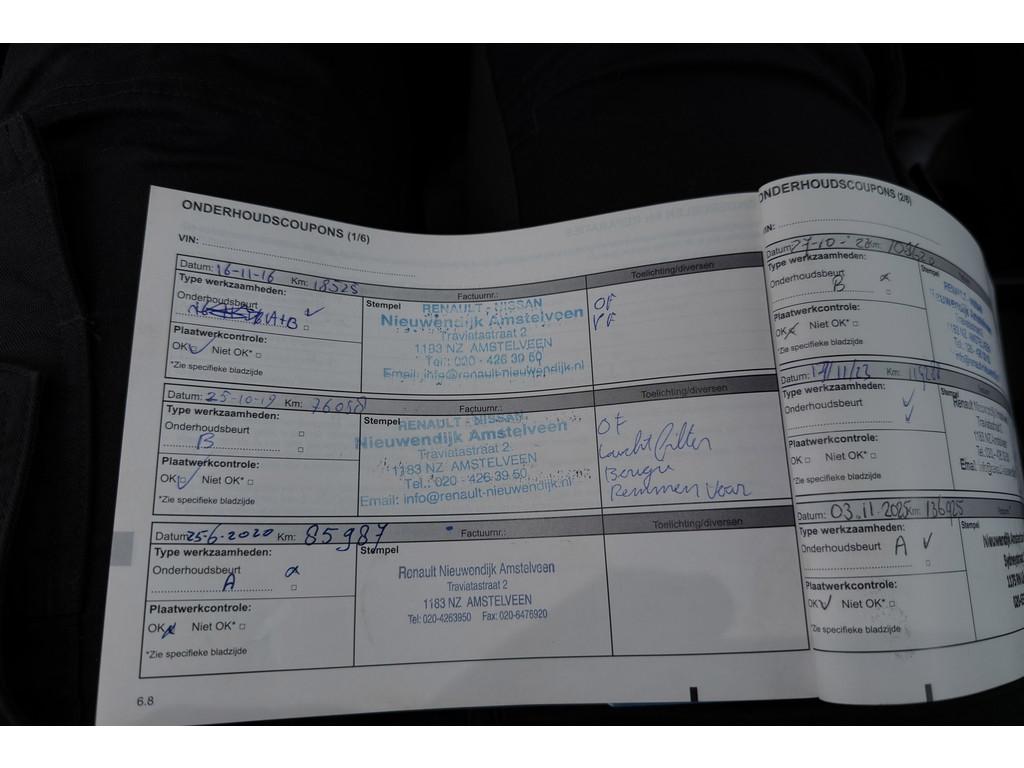 ONDERHOUDSCOUPONS (1/6)
VIN:
Datum: 16-11-16 Km: 18525
Type werkzaamheden:
Onderhoudsbeurt
A+B
Plaatwerkcontrole:
OK Niet OK*
*Zie specifieke bladzijde
Factuurnr.:
Stempel
RENAULT - NISSAN
Nieuwendijk Amstelveen
Traviatastraat 2
1183 NZ AMSTELVEEN
Tel.: 020 - 426 39 50
Email: info@renault-nieuwendijk.nl
Toelichting/diversen
OF
Datum: 25-10-19 Km: 76088
Type werkzaamheden:
Onderhoudsbeurt
B
Plaatwerkcontrole:
OK Niet OK*
*Zie specifieke bladzijde
Factuurnr.:
Stempel
RENAULT - NISSAN
Nieuwendijk Amstelveen
Traviatastraat 2
1183 NZ AMSTELVEEN
Tel.: 020 - 426 39 50
Email: info@renault-nieuwendijk.nl
Toelichting/diversen
OF
Luchtfilter
Bougie
Remmen Voor
Datum: 25-6-2020 Km: 85987
Type werkzaamheden:
Onderhoudsbeurt
A
Plaatwerkcontrole:
OK Niet OK*
*Zie specifieke bladzijde
Factuurnr.:
Stempel
Renault Nieuwendijk Amstelveen
Traviatastraat 2
1183 NZ AMSTELVEEN
Tel: 020-4263950 Fax: 020-6476920
Toelichting/diversen
6.8
ONDERHOUDSCOUPONS (2/6)
Datum: 27-10- Km:
Type werkzaamheden:
Onderhoudsbeurt
B
Plaatwerkcontrole:
OK Niet OK*
*Zie specifieke bladzijde
Stempel
Datum: Km:
Type werkzaamheden:
Onderhoudsbeurt
Plaatwerkcontrole:
OK Niet OK*
*Zie specifieke bladzijde
Datum: 03.11.2025 Km: 136925
Type werkzaamheden:
Onderhoudsbeurt A
Plaatwerkcontrole:
OK Niet OK*
*Zie specifieke bladzijde
Stempel